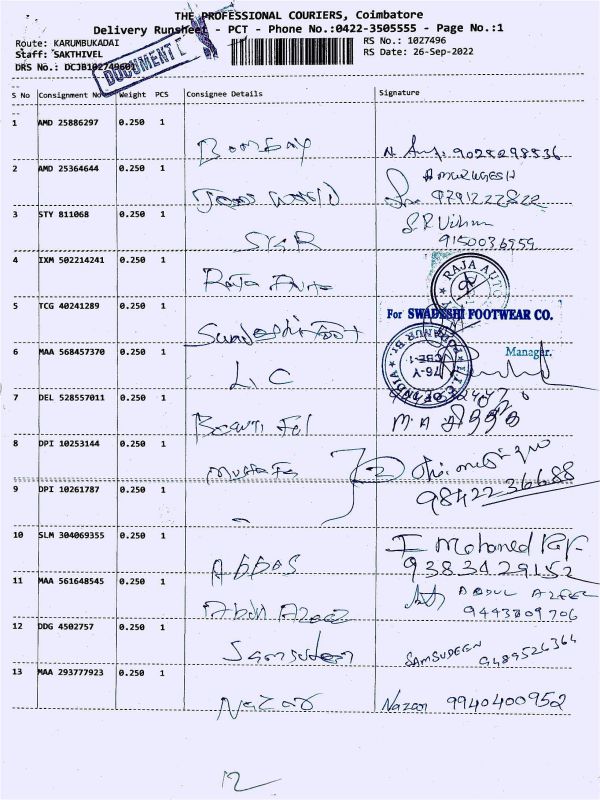 THE PROFESSIONAL COURIERS, Coimbatore
Delivery Runsheet - PCT - Phone No.:0422-3505555 - Page No.:1
Route: KARUMBUKADAI RS No.: 1027496
Staff: SAKTHIVEL RS Date: 26-Sep-2022
DRS No.: DCJB102749601
DOCUMENT
S No Consignment No Weight PCS Consignee Details Signature
1 AMD 25886297 0.250 1
Bombay
2 AMD 25364644 0.250 1 AMURUGESH
3 STY 811068 0.250 1
9150036959
4 IXM 502214241 0.250 1 RAJA AUTO
Raja Auto
5 TCG 40241289 0.250 1 For SWADESHI FOOTWEAR CO.
Swadeshi Foot
6 MAA 568457370 0.250 1 Manager.
LIC L.I.C OF INDIA 76-Y CBE-1
7 DEL 528557011 0.250 1
M.A
8 DPI 10253144 0.250 1
Mustafa 2
9 DPI 10261787 0.250 1 9842236688
10 SLM 304069355 0.250 1 I Mohamed
Abbas 9383429152
11 MAA 561648545 0.250 1 ABDUL AZEEZ
Abdul Azeez 9443809706
12 DDG 4502757 0.250 1
Samsudeen SAMSUDEEN 9489526364
13 MAA 293777923 0.250 1
Nazar Nazar 9940400952
12